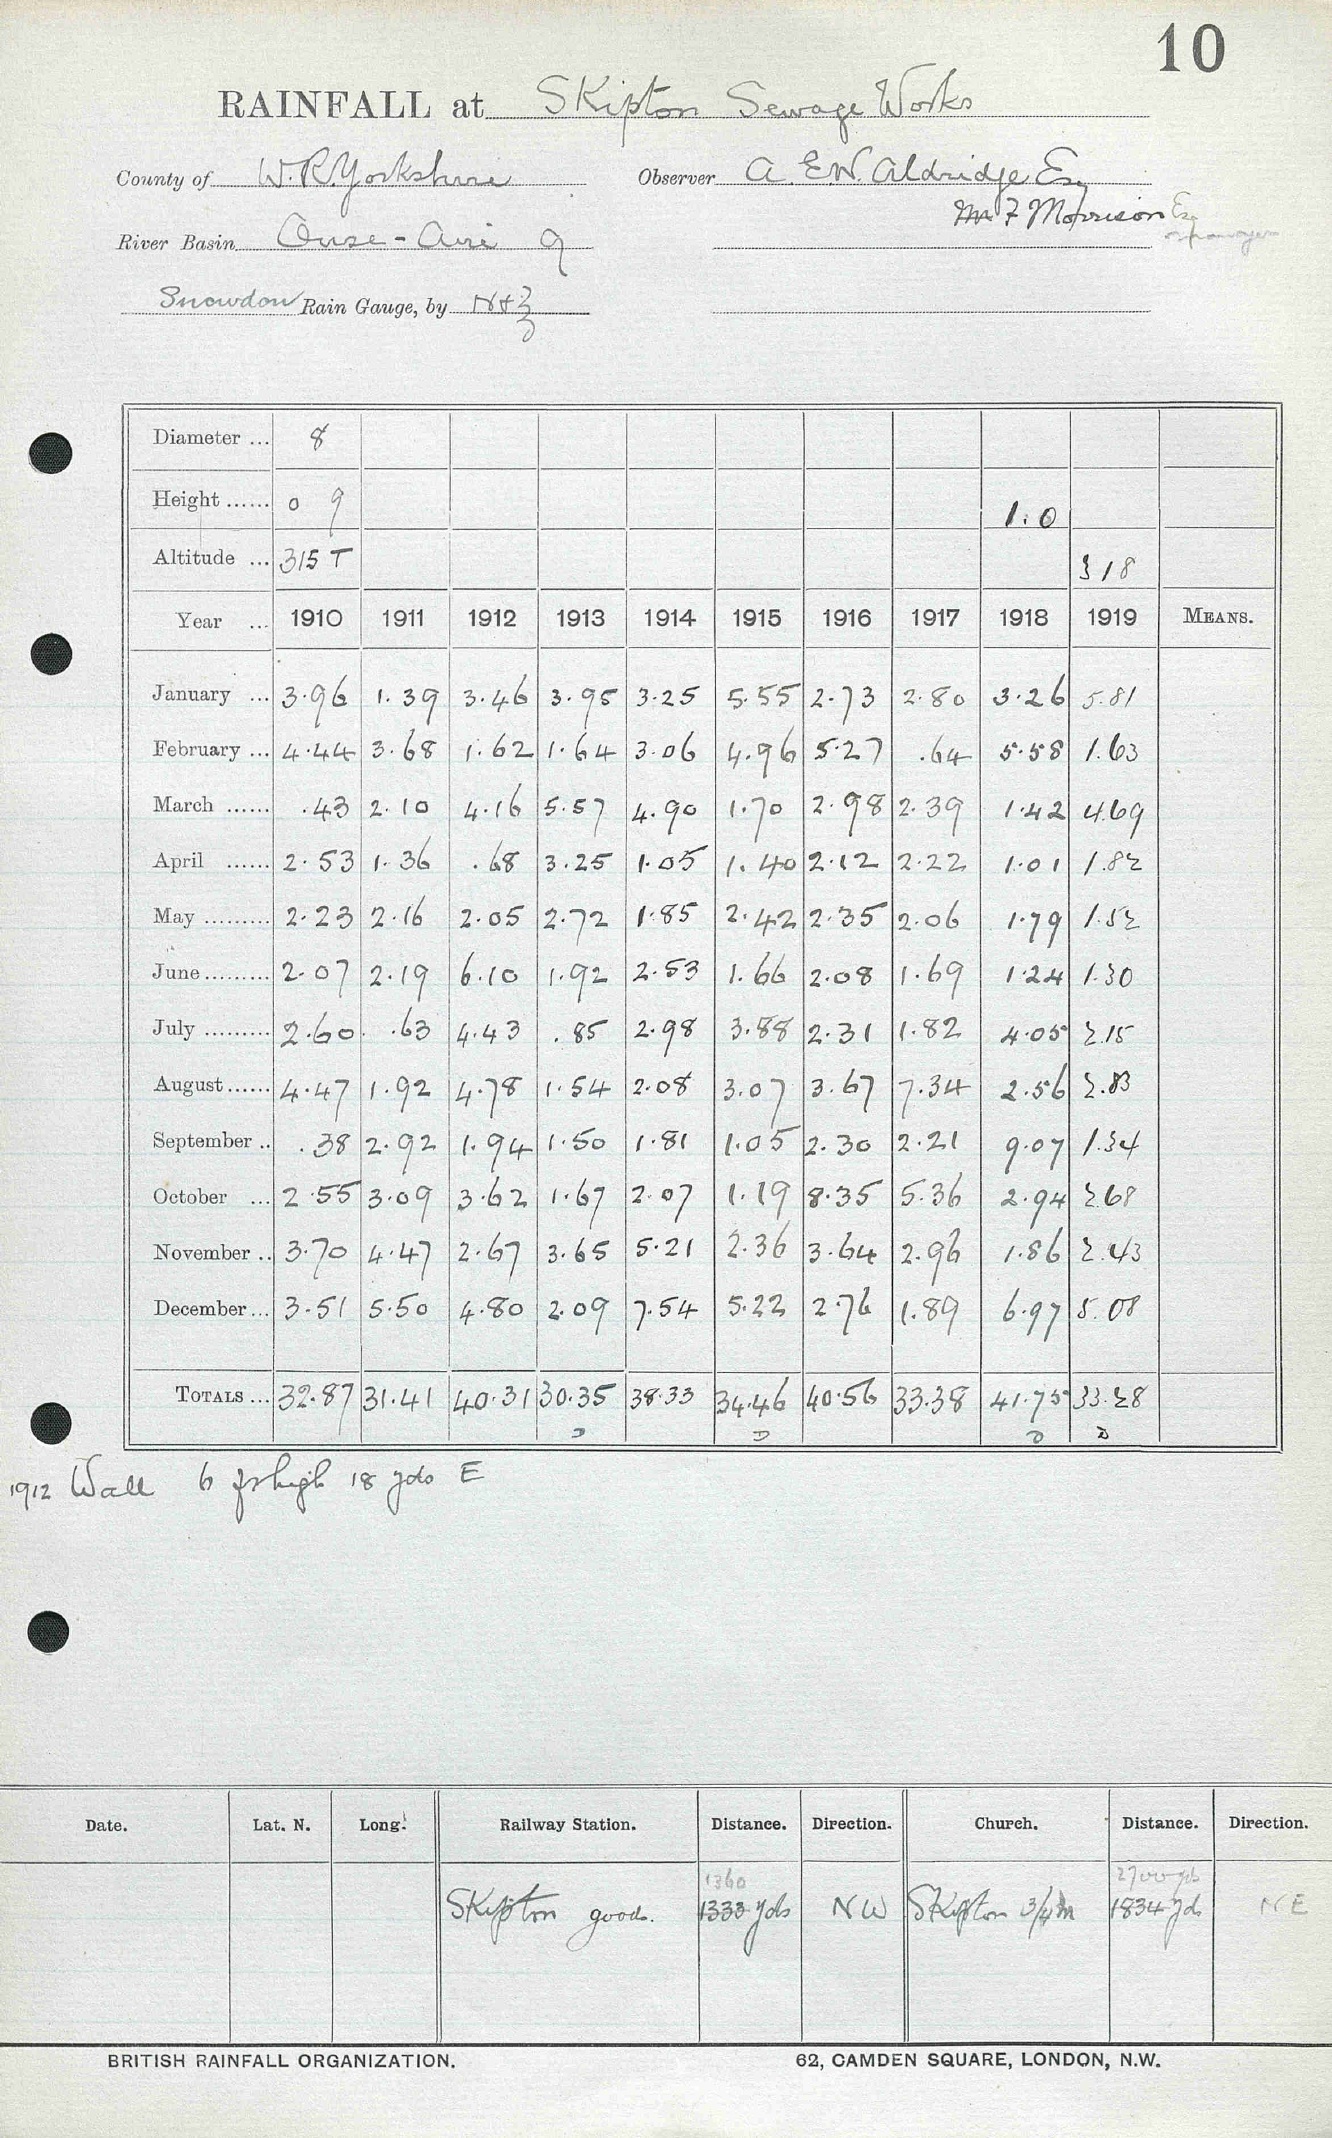 10
RAINFALL at Skipton Sewage Works
County of W.R. Yorkshire Observer A. E.W. Aldridge Esq
Mr F Morrison Esq
River Basin Ouse - Aire 9
Snowdon Rain Gauge, by N+Z
Diameter ... 8
Height ...... 0 9 1.0
Altitude ... 315 T 318
Year ... 1910 1911 1912 1913 1914 1915 1916 1917 1918 1919 MEANS.
January ... 3.96 1.39 3.46 3.95 3.25 5.55 2.73 2.80 3.26 5.81
February ... 4.44 3.68 1.62 1.64 3.06 4.96 5.27 .64 5.58 1.63
March ...... .43 2.10 4.16 5.57 4.90 1.70 2.98 2.39 1.42 4.69
April ...... 2.53 1.36 .68 3.25 1.05 1.40 2.12 2.22 1.01 1.82
May ......... 2.23 2.16 2.05 2.72 1.85 2.42 2.35 2.06 1.79 1.52
June ......... 2.07 2.19 6.10 1.92 2.53 1.66 2.08 1.69 1.24 1.30
July ......... 2.60 .63 4.43 .85 2.98 3.88 2.31 1.82 4.05 2.15
August ...... 4.47 1.92 4.78 1.54 2.08 3.07 3.67 7.34 2.56 2.83
September .. .38 2.92 1.94 1.50 1.81 1.05 2.30 2.21 9.07 1.34
October ... 2.55 3.09 3.62 1.67 2.07 1.19 8.35 5.36 2.94 2.68
November .. 3.70 4.47 2.67 3.65 5.21 2.36 3.64 2.96 1.86 2.43
December ... 3.51 5.50 4.80 2.09 7.54 5.22 2.76 1.89 6.97 5.08
TOTALS ... 32.87 31.41 40.31 30.35 38.33 34.46 40.56 33.38 41.75 33.28
D D D D
1912 Wall 6 ft high 18 yds E
Date. Lat. N. Long. Railway Station. Distance. Direction. Church. Distance. Direction.
1360 2700 yds
Skipton goods. 1333 yds NW Skipton 3/4 m 1834 yds NE
BRITISH RAINFALL ORGANIZATION. 62, CAMDEN SQUARE, LONDON, N.W.